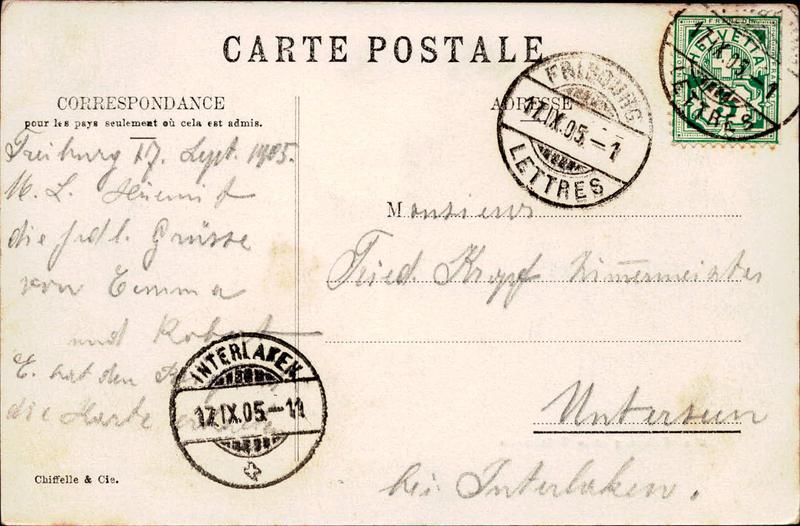 CARTE POSTALE
CORRESPONDANCE
pour les pays seulement où cela est admis.
ADRESSE
Freiburg 17. Sept. 1905.
M. L. Hiemit
die frdl. Grüsse
von Emma
und Robert
E. hat den
die Karte
Monsieur
Fried. Kropf Zimmermeister
Unterseen
bei Interlaken.
FRIBOURG
17.IX.05.-1
LETTRES
HELVETIA
FRANCO
IX.05.-1
LETTRES
INTERLAKEN
17.IX.05.-11
Chiffelle & Cie.